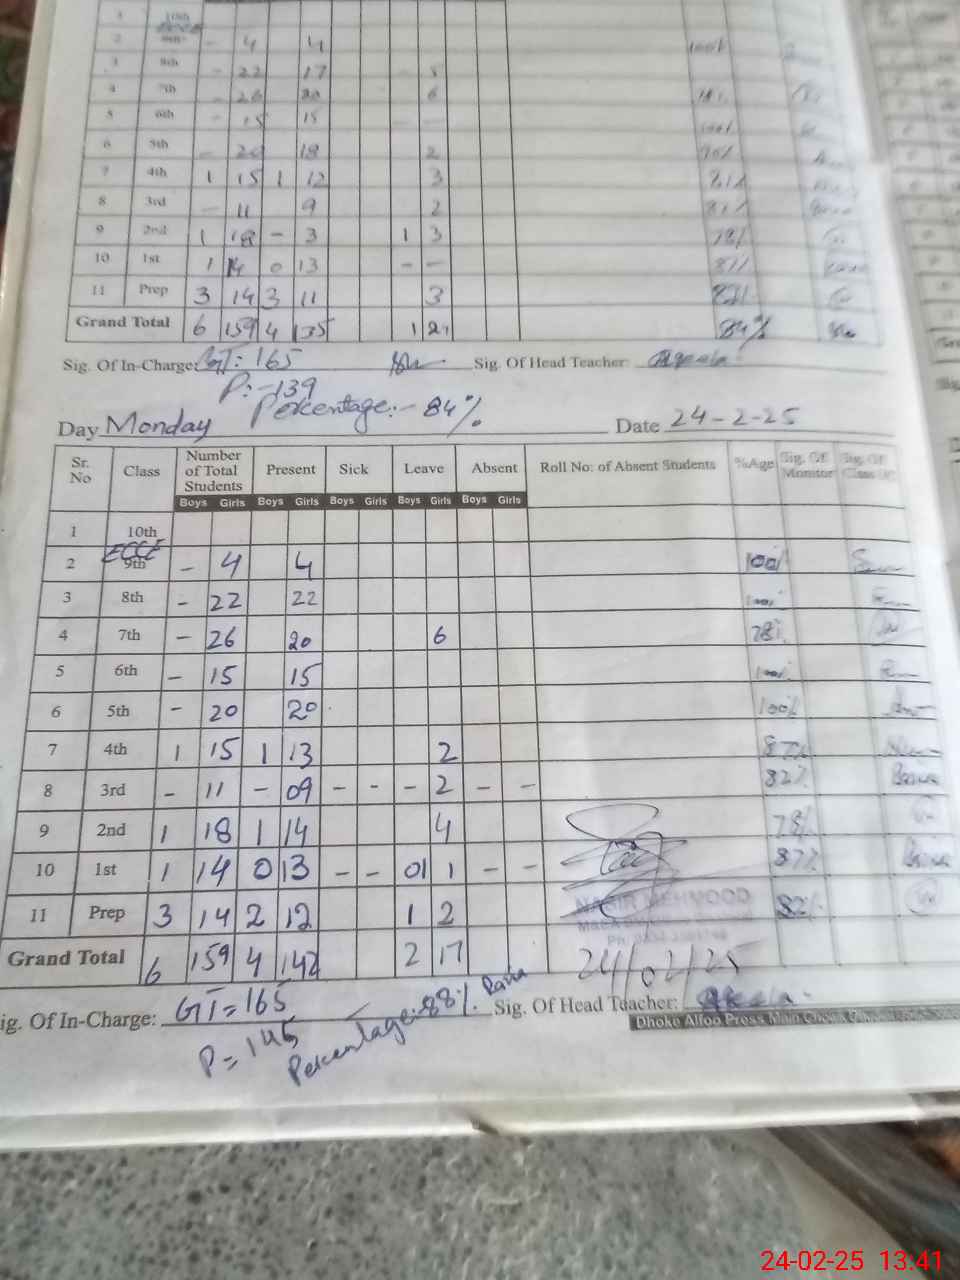 1 10th
2 - 4 4 100%
3 8th - 22 17 - 5
4 7th - 26 20 6 78%
5 6th - 15 15 - - 100%
6 5th - 20 18 2 90%
7 4th 1 15 1 12 3 81%
8 3rd - 11 9 2 81%
9 2nd 1 18 - 3 1 3 78%
10 1st 1 14 0 13 - -
11 Prep 3 14 3 11 3 82%
Grand Total 6 159 4 135 1 84%
Sig. Of In-Charge: GT:- 165 Sig. Of Head Teacher: Akeela
P:- 139
Percentage:- 84%
Day Monday Date 24-2-25
Sr. No Class Number of Total Students Present Sick Leave Absent Roll No: of Absent Students %Age Sig. Of Monitor Sig. Of
Boys Girls Boys Girls Boys Girls Boys Girls Boys Girls
1 10th
ECCE
2 9th - 4 4 100%
3 8th - 22 22 100%
4 7th - 26 20 6 78%
5 6th - 15 15 100%
6 5th - 20 20 100%
7 4th 1 15 1 13 2 87%
8 3rd - 11 - 09 - - - 2 - - 82%
9 2nd 1 18 1 14 4 78%
10 1st 1 14 0 13 - - 01 1 - - 87%
11 Prep 3 14 2 12 1 2 82%
NASIR MEHMOOD
Grand Total 6 159 4 142 2 17 24/02/25
ig. Of In-Charge: GT = 165 Sig. Of Head Teacher: Akeela
P = 145 Percentage:- 88% Rania
Dhoke Alfoo Press Main Chowk
24-02-25 13:41